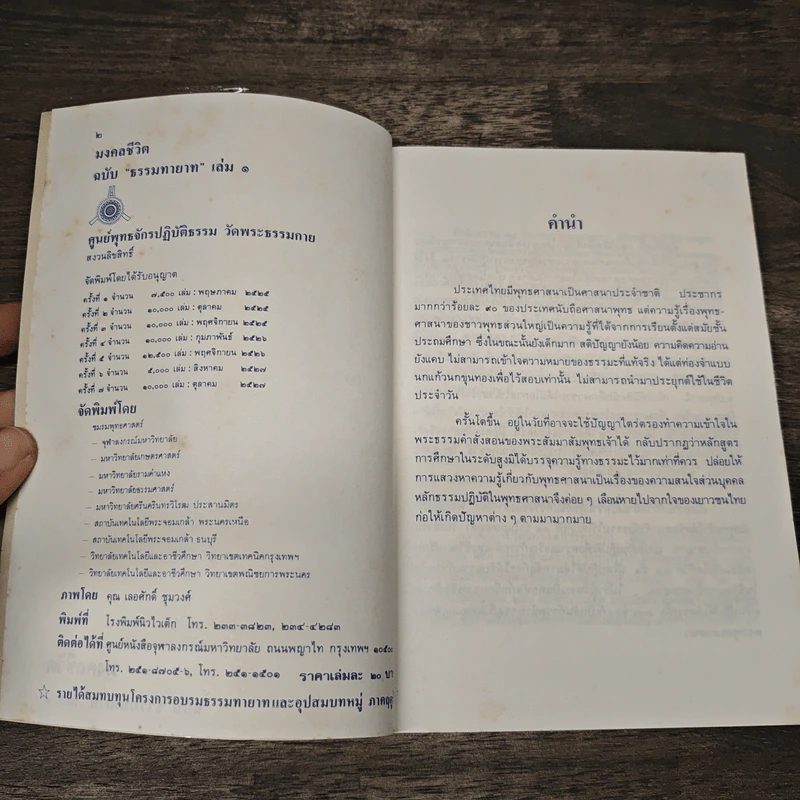 ๒
มงคลชีวิต
ฉบับ "ธรรมทายาท" เล่ม ๑
ศูนย์พุทธจักรปฏิบัติธรรม วัดพระธรรมกาย
สงวนลิขสิทธิ์
จัดพิมพ์โดยได้รับอนุญาต
ครั้งที่ ๑ จำนวน ๗,๕๐๐ เล่ม : พฤษภาคม ๒๕๒๕
ครั้งที่ ๒ จำนวน ๑๐,๐๐๐ เล่ม : ตุลาคม ๒๕๒๕
ครั้งที่ ๓ จำนวน ๑๐,๐๐๐ เล่ม : พฤศจิกายน ๒๕๒๕
ครั้งที่ ๔ จำนวน ๑๐,๐๐๐ เล่ม : กุมภาพันธ์ ๒๕๒๖
ครั้งที่ ๕ จำนวน ๑๒,๕๐๐ เล่ม : พฤศจิกายน ๒๕๒๖
ครั้งที่ ๖ จำนวน ๕,๐๐๐ เล่ม : สิงหาคม ๒๕๒๗
ครั้งที่ ๗ จำนวน ๑๐,๐๐๐ เล่ม : ตุลาคม ๒๕๒๗
จัดพิมพ์โดย
ชมรมพุทธศาสตร์
– จุฬาลงกรณ์มหาวิทยาลัย
– มหาวิทยาลัยเกษตรศาสตร์
– มหาวิทยาลัยรามคำแหง
– มหาวิทยาลัยธรรมศาสตร์
– มหาวิทยาลัยศรีนครินทรวิโรฒ ประสานมิตร
– สถาบันเทคโนโลยีพระจอมเกล้า พระนครเหนือ
– สถาบันเทคโนโลยีพระจอมเกล้า ธนบุรี
– วิทยาลัยเทคโนโลยีและอาชีวศึกษา วิทยาเขตเทคนิคกรุงเทพฯ
– วิทยาลัยเทคโนโลยีและอาชีวศึกษา วิทยาเขตพณิชยการพระนคร
ภาพโดย คุณ เลอศักดิ์ ชุมวงศ์
พิมพ์ที่ โรงพิมพ์นิวไวเต็ก โทร. ๒๓๓-๓๘๒๓, ๒๓๔-๔๒๘๓
ติดต่อได้ที่ ศูนย์หนังสือจุฬาลงกรณ์มหาวิทยาลัย ถนนพญาไท กรุงเทพฯ ๑๐๕๐๐
โทร. ๒๕๑-๘๗๐๕-๖, โทร. ๒๕๑-๑๕๐๑ ราคาเล่มละ ๒๐ บา
☆ รายได้สมทบทุนโครงการอบรมธรรมทายาทและอุปสมบทหมู่ ภาคฤดู
คำนำ
ประเทศไทยมีพุทธศาสนาเป็นศาสนาประจำชาติ ประชากร
มากกว่าร้อยละ ๙๐ ของประเทศนับถือศาสนาพุทธ แต่ความรู้เรื่องพุทธ-
ศาสนาของชาวพุทธส่วนใหญ่เป็นความรู้ที่ได้จากการเรียนตั้งแต่สมัยชั้น
ประถมศึกษา ซึ่งในขณะนั้นยังเด็กมาก สติปัญญายังน้อย ความคิดความอ่าน
ยังแคบ ไม่สามารถเข้าใจความหมายของธรรมะที่แท้จริง ได้แต่ท่องจำแบบ
นกแก้วนกขุนทองเพื่อไว้สอบเท่านั้น ไม่สามารถนำมาประยุกต์ใช้ในชีวิต
ประจำวัน
ครั้นโตขึ้น อยู่ในวัยที่อาจจะใช้ปัญญาไตร่ตรองทำความเข้าใจใน
พระธรรมคำสั่งสอนของพระสัมมาสัมพุทธเจ้าได้ กลับปรากฏว่าหลักสูตร
การศึกษาในระดับสูงมิได้บรรจุความรู้ทางธรรมะไว้มากเท่าที่ควร ปล่อยให้
การแสวงหาความรู้เกี่ยวกับพุทธศาสนาเป็นเรื่องของความสนใจส่วนบุคคล
หลักธรรมปฏิบัติในพุทธศาสนาจึงค่อย ๆ เลือนหายไปจากใจของเยาวชนไทย
ก่อให้เกิดปัญหาต่าง ๆ ตามมามากมาย